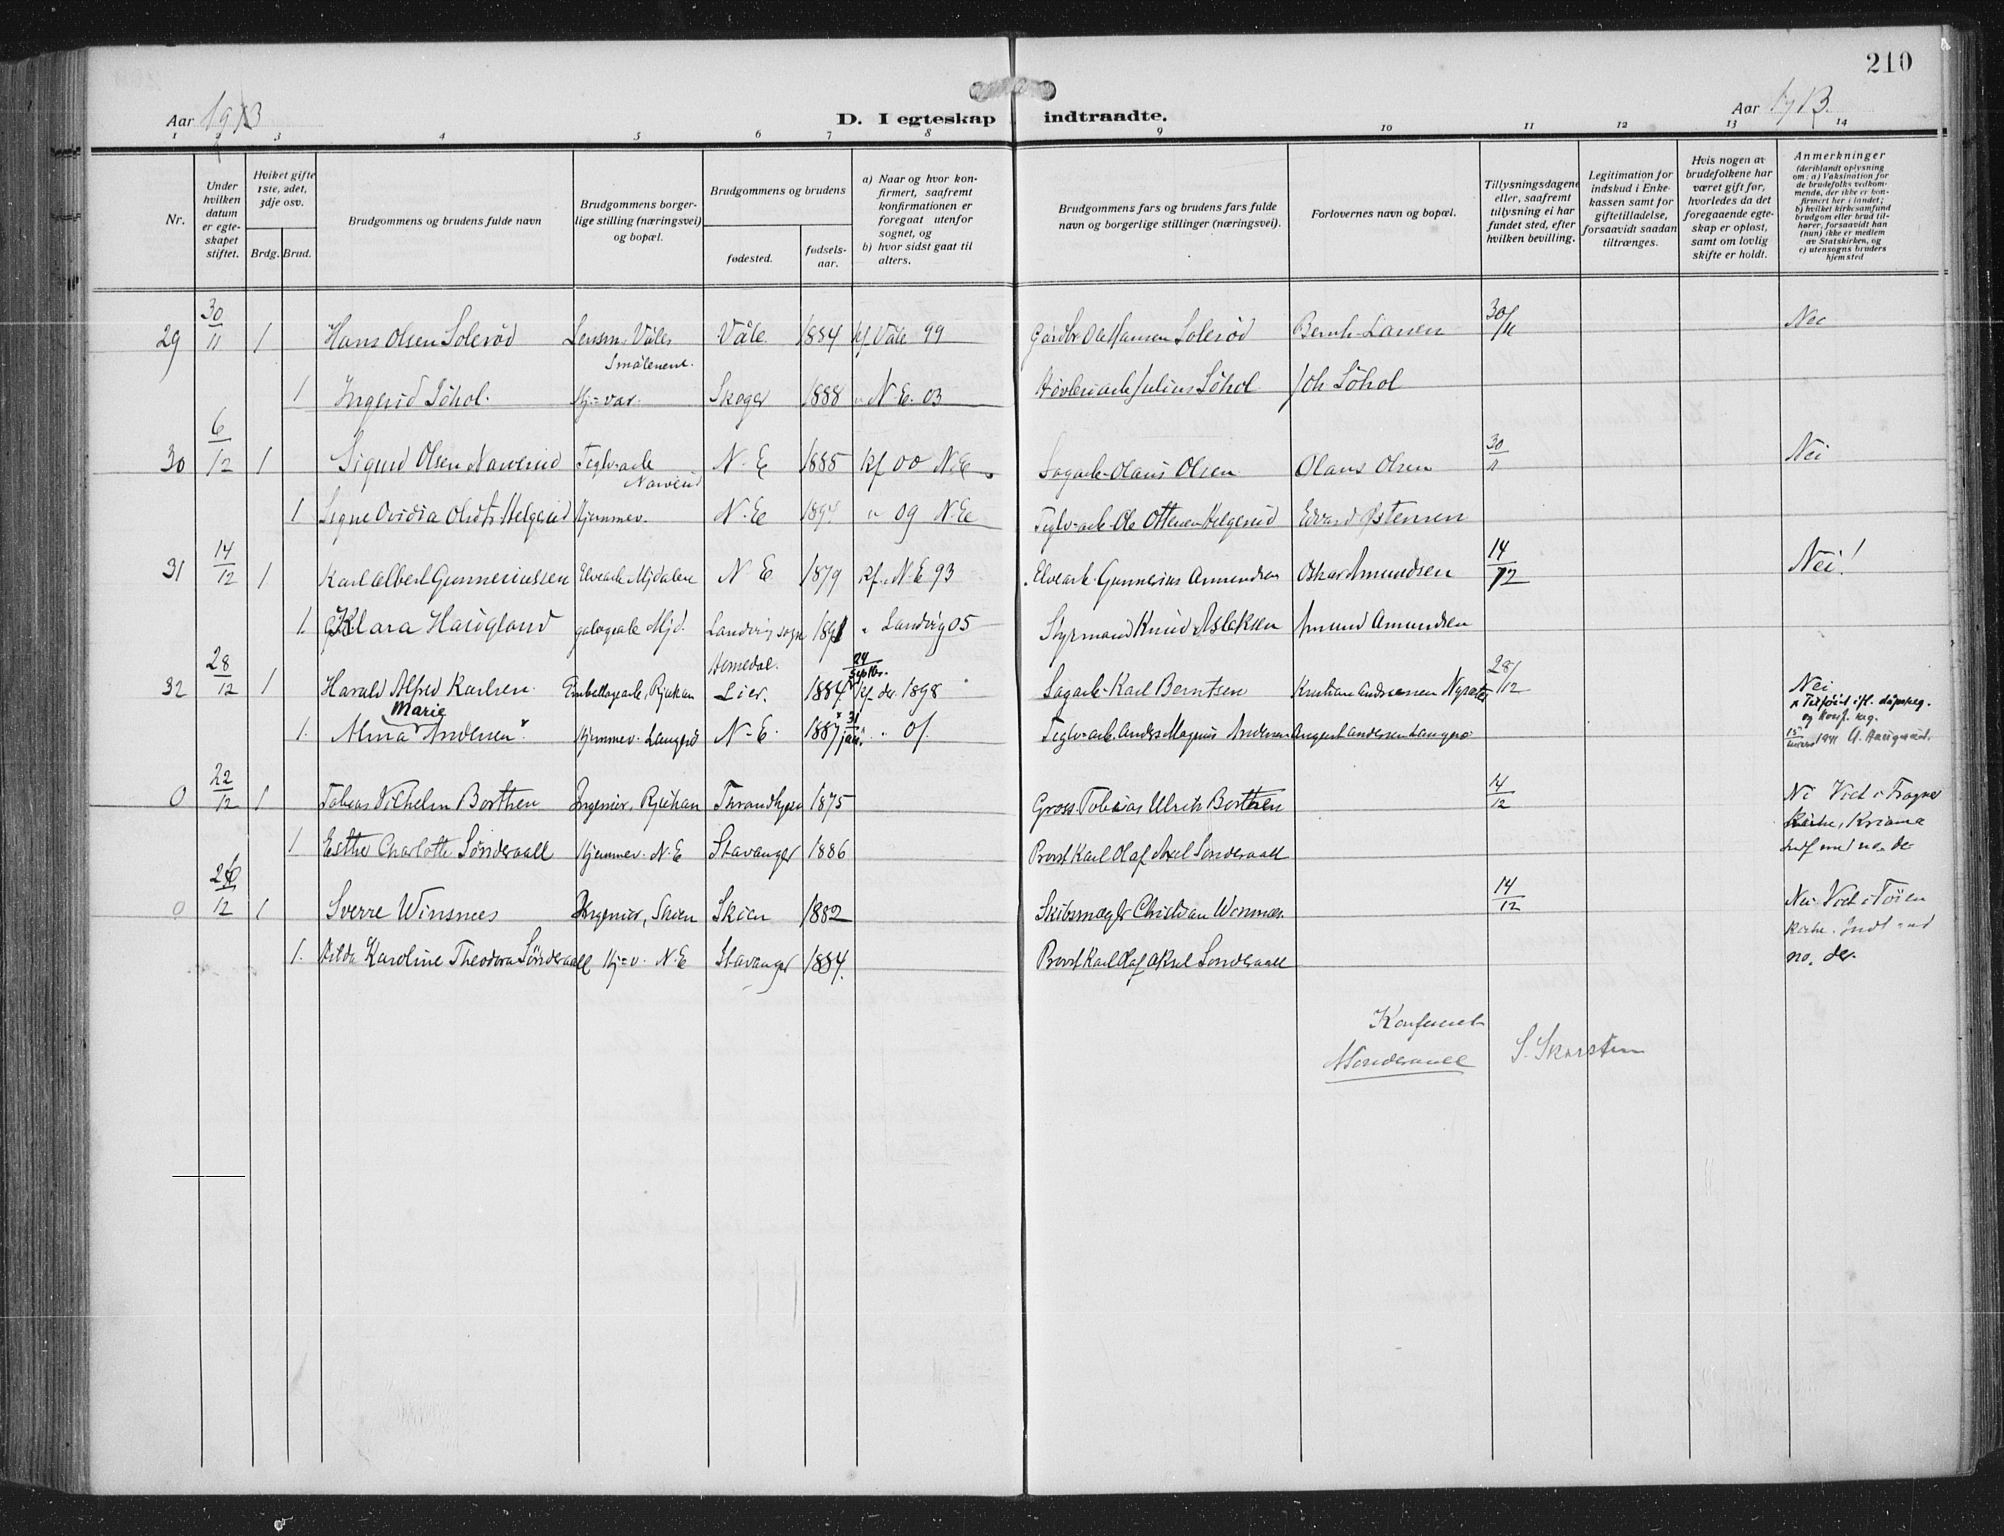 210
Aar 1913
D. I egteskap indtraadte.
Aar 1913.
1 2 3 4 5 6 7 8 9 10 11 12 13 14
Nr.
Under hvilken datum er egteskapet stiftet.
Hvilket gifte 1ste, 2det, 3dje osv.
Brdg. Brud.
Brudgommens og brudens fulde navn
Brudgommens borgerlige stilling (næringsvei) og bopæl.
Brudgommens og brudens
fødested.
fødselsaar.
a) Naar og hvor konfirmert, saafremt konfirmationen er foregaat utenfor sognet, og
b) hvor sidst gaat til alters.
Brudgommens fars og brudens fars fulde navn og borgerlige stillinger (næringsvei).
Forlovernes navn og bopæl.
Tillysningsdagene eller, saafremt tilysning ei har fundet sted, efter hvilken bevilling.
Legitimation for indskud i Enkekassen samt for giftetilladelse, forsaavidt saadan tiltrænges.
Hvis nogen av brudefolkene har været gift før, hvorledes da det foregaaende egteskap er opløst, samt om lovlig skifte er holdt.
Anmerkninger
(deriblandt oplysning om: a) Vaksination for de brudefolks vedkommende, der ikke er konfirmert her i landet; b) hvilket kirkesamfund brudgom eller brud tilhører, forsaavidt han (hun) ikke er medlem av Statskirken, og c) utensogns bruders hjemsted
29 30/11 1 Hans Olsen Solerød Lensm. Våler Smålenene. Våle. 1884 kf. Våle 99 Gårdbr Ole Hansen Solerød Bernh. Larsen 30/11 Nei
1 Ingerid Søhol. Hj=var. Skoger 1888 " N.E. 03 Høvleriarb Julius Søhol Joh Søhol
30 6/12 1 Sigurd Olsen Narverud Teglv=arb Narverud N-E 1885 kf 00 N.E. Sagarb. Olaus Olsen Olaus Olsen 30/11 Nei
1 Signe Ovidia Olsdtr Helgerud Hjemmev. N-E 1894 " 09 N-E Teglv=arb. Ole Ottersen Helgerud Edvard Østensen
31 14/12 1 Karl Albert Gunneriussen Elvearb Mjdalen N E 1879 kf. N.E 93 Elvearb. Gunnerius Amundsen Oskar Amundsen 14/12 Nei!
1. Klara Haugland Mjd. Landvig sogn 1891 " Landvig 05 Styrmand Knud Aslaksen Amund Amundsen
32 28/12 1 Harald Alfred Karlsen. Emballagearb, Rjukan Lier. 1884 24 septbr. kf. der 1898 Sagarb. Karl Berntsen Kristian Andreassen 28/12 Nei
x Tilføiet ifl. dåpskeg. og konf. keg.
1. Alma Marie Andersen x Hjemmev. Langerø N-E. 1887 31 jan. " " 01. Teglv=arb Anders Magnus Andersen August Andersen Langerø 1941
0 22/12 1 Tobias Vilhelm Borthen Ingeniør, Rjukan Throndhjem 1875 Gross. Tobias Ulrik Borthen 14/12 Nei Viet i Frogner kirke, Kriania
1 Esther Charlotte Sønderaall Hjemmev. N.E Stavanger 1886 Provst Karl Olaf Axel Sønderaall
0 1 Sverre Winsnes Ingeniør, Skien Skien 1882 Skibsmægler Christian Winsnes. 14/12 Nei Viet i Tøien kirke. no. der.
1. Hilda Karoline Theodora Sønderaall Hj=v. N.E Stavanger 1884. Provst Karl Olaf Aksel Sønderaall
Konfereret
Sønderaall S. Skarsten